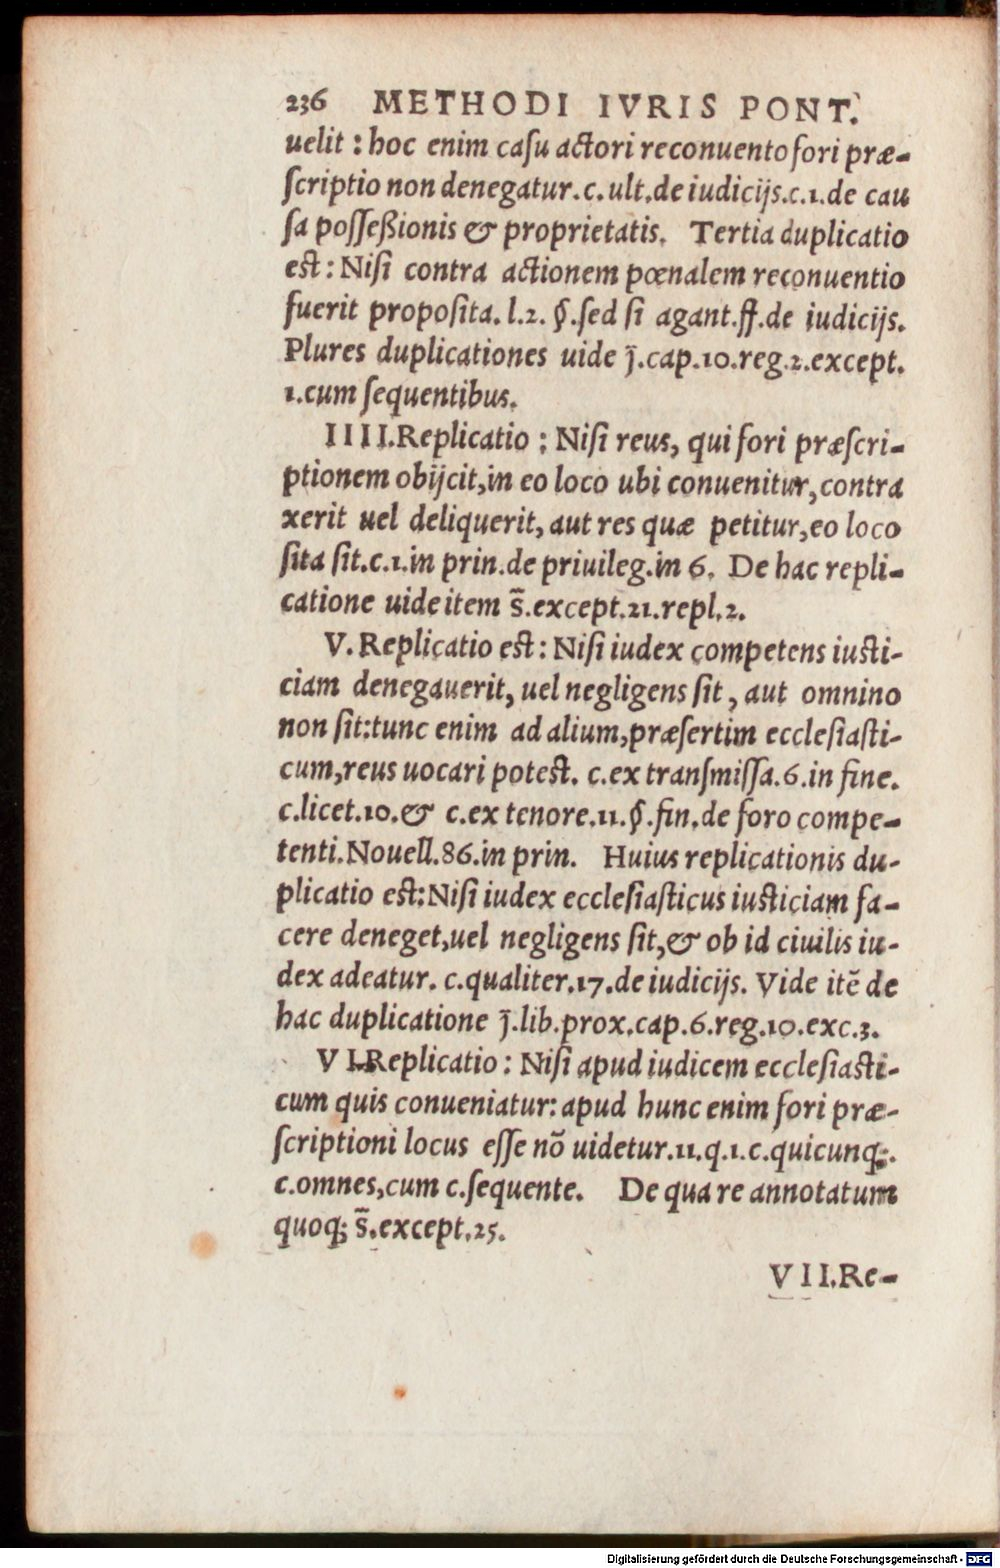 236 METHODI IVRIS PONT.
uelit : hoc enim caſu actori reconuento fori præ-
ſcriptio non denegatur. c. ult. de iudicijs. c. 1. de cau
ſa poſſeßionis & proprietatis. Tertia duplicatio
est : Niſi contra actionem pœnalem reconuentio
fuerit propoſita. l. 2. §. ſed ſi agant. ff. de iudicijs.
Plures duplicationes uide j̄. cap. 10. reg. 2. except.
1. cum ſequentibus.
IIII. Replicatio : Niſi reus, qui fori præſcri-
ptionem obijcit, in eo loco ubi conuenitur, contra
xerit uel deliquerit, aut res quæ petitur, eo loco
ſita ſit. c. 1. in prin. de priuileg. in 6. De hac repli-
catione uide item s̄. except. 21. repl. 2.
V. Replicatio est : Niſi iudex competens iusti-
ciam denegauerit, uel negligens ſit, aut omnino
non ſit: tunc enim ad alium, præſertim eccleſiaſti-
cum, reus uocari potest. c. ex tranſmiſſa. 6. in fine.
c. licet. 10. & c. ex tenore. 11. §. fin. de foro compe-
tenti. Nouell. 86. in prin. Huius replicationis du-
plicatio est: Niſi iudex eccleſiaſticus iusticiam fa-
cere deneget, uel negligens ſit, & ob id ciuilis iu-
dex adeatur. c. qualiter. 17. de iudicijs. Vide itē de
hac duplicatione j̄. lib. prox. cap. 6. reg. 10. exc. 3.
VI. Replicatio : Niſi apud iudicem eccleſiasti-
cum quis conueniatur: apud hunc enim fori præ-
ſcriptioni locus eſſe nō uidetur. 11. q. 1. c. quicunq;.
c. omnes, cum c. ſequente. De qua re annotatum
quoq; s̄. except. 25.
VII. Re-
Digitalisierung gefördert durch die Deutsche Forschungsgemeinschaft - DFG